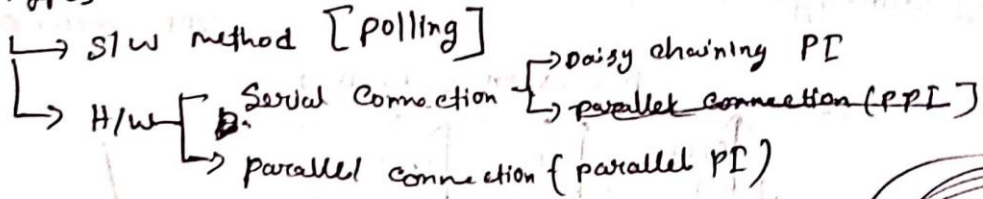 → S/W method [polling]
→ H/W Serial Connection → Daisy chaining PI
→ parallel connection (PPI]
→ parallel connection (parallel PI)